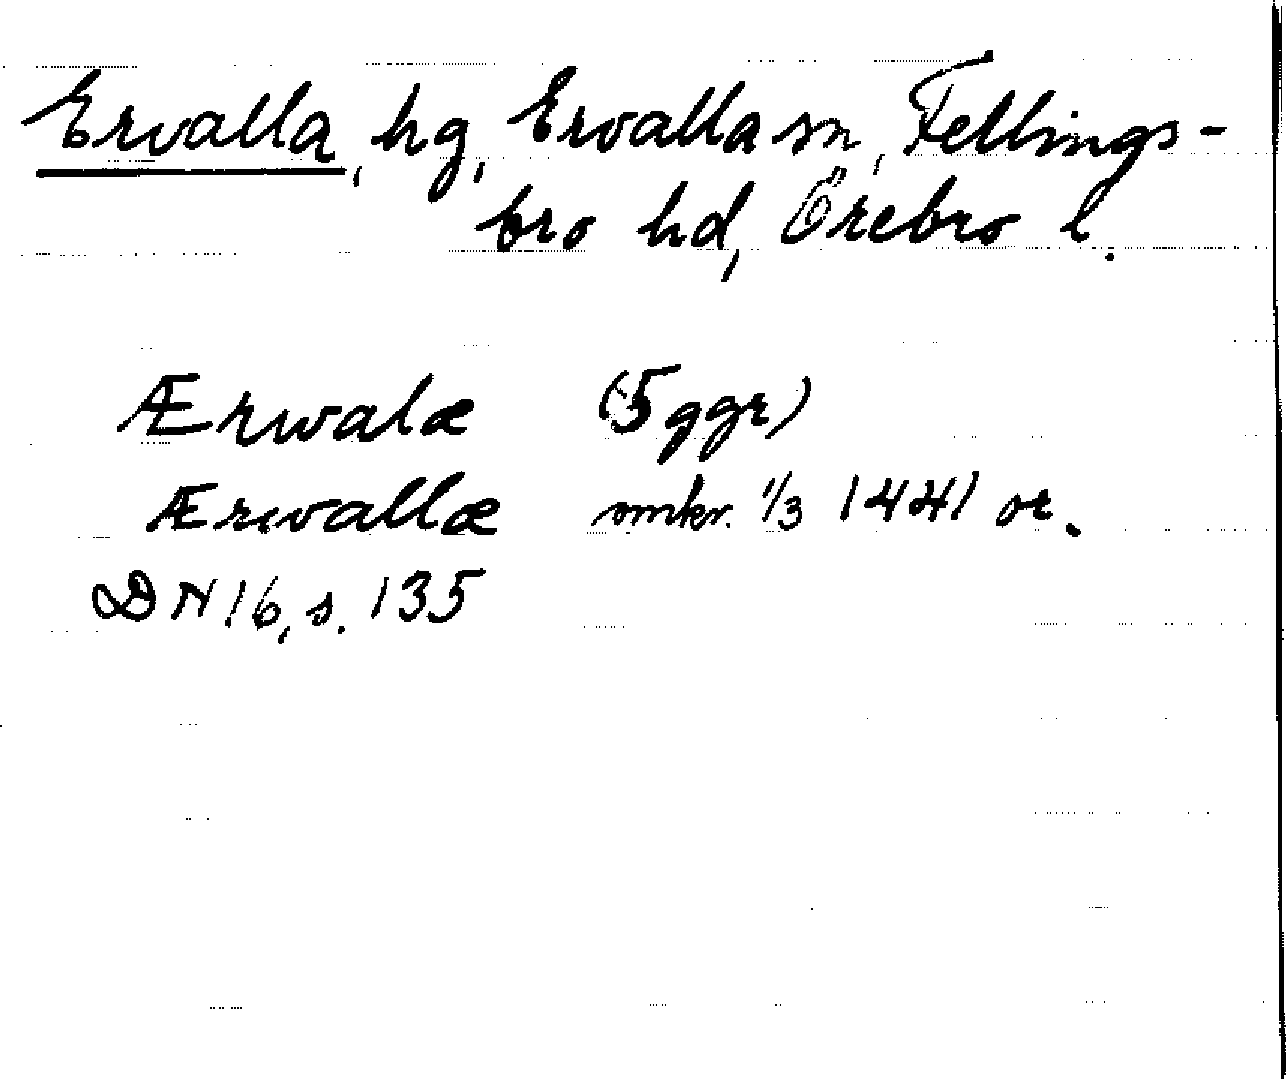 Ervalla, hg, Ervalla sn, Fellings-
bro hd, Örebro l.
Ærwalæ (5 ggr)
Ærwallæ omkr. 1/3 1441 or.
DN 16, s. 135